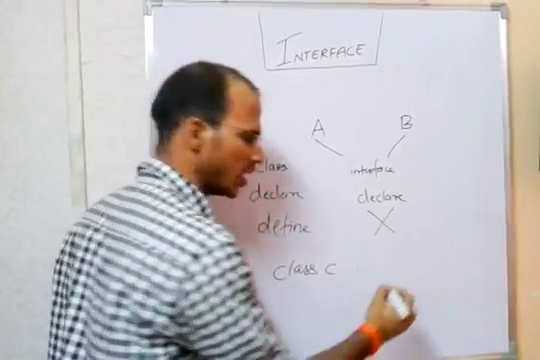 INTERFACE
A B
class interface
declare declare
define X
class C